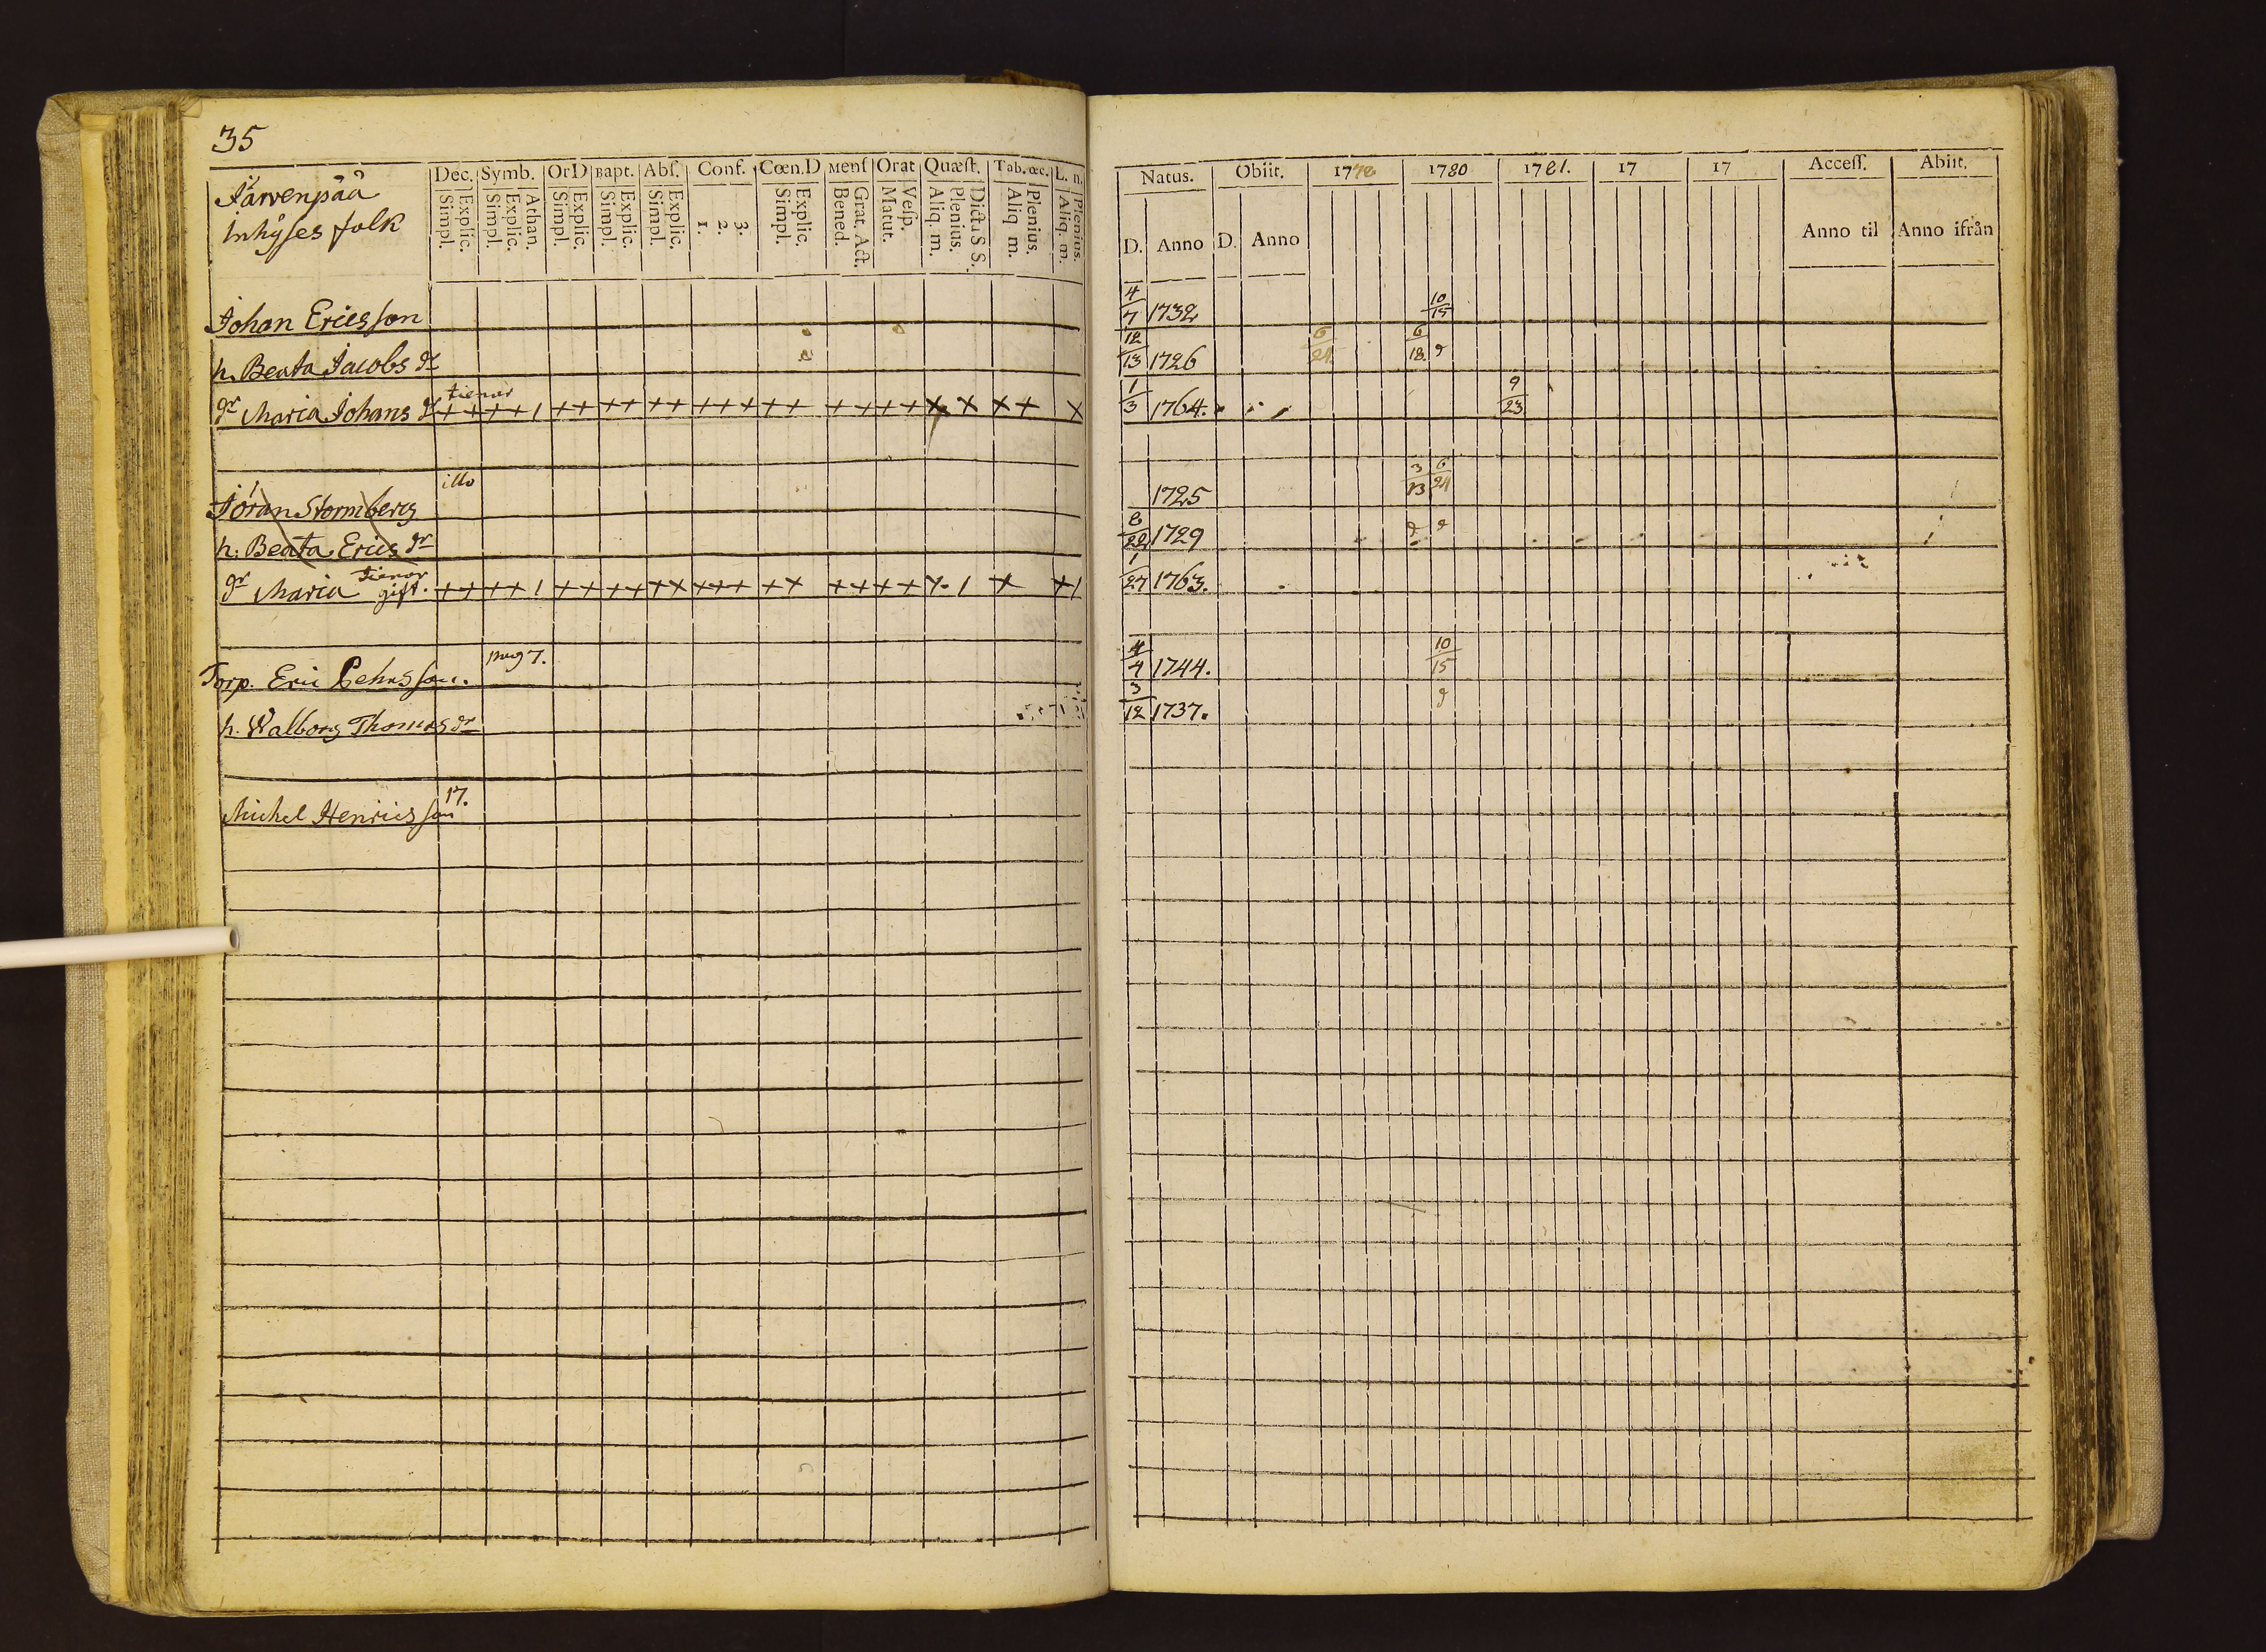 35
Järvenpää
inhyses folk
Dec. Symb. Or D Bapt. Abſ. Conf. Cœn. D Menſ Orat Quæſt. Tab. œc. L. n.
Simpl. Explic. Simpl. Explic. Athan. Simpl. Explic. Simpl. Explic. Simpl. Explic. 1. 2. 3. Simpl. Explic. Bened. Grat. Act. Matut. Veſp. Aliq. m. Plenius. Dict. S S. Aliq m. Plenius. Aliq. m. Plenius.
Johan Ericsson
h. Beata Jacobs dr
tienar
dr Maria Johans dr ++ ++1 ++ ++ ++ +++ ++ ++ ++ x x x+ x
Jöran Stormberg
h: Beata Erics dr
dr Maria tienar gift. ++ ++1 ++ ++ ++ +++ ++ ++ ++ +. 1 + +1
Torp. Eric Pehrsson.
h. Walborg Thomas dr
17.
Michel Henricsson
Natus. Obiit. 1778 1780 1781. 17 17 Acceſſ. Abiit.
D. Anno D. Anno Anno til Anno ifrån
4/7 1732 10/15
12/13 1726 6/21. 6/18.
1/3 1764. 9/23
1725 3/13 6/24
8/22 1729
1/27 1763.
4/4 1744. 10/15
3/12 1737.